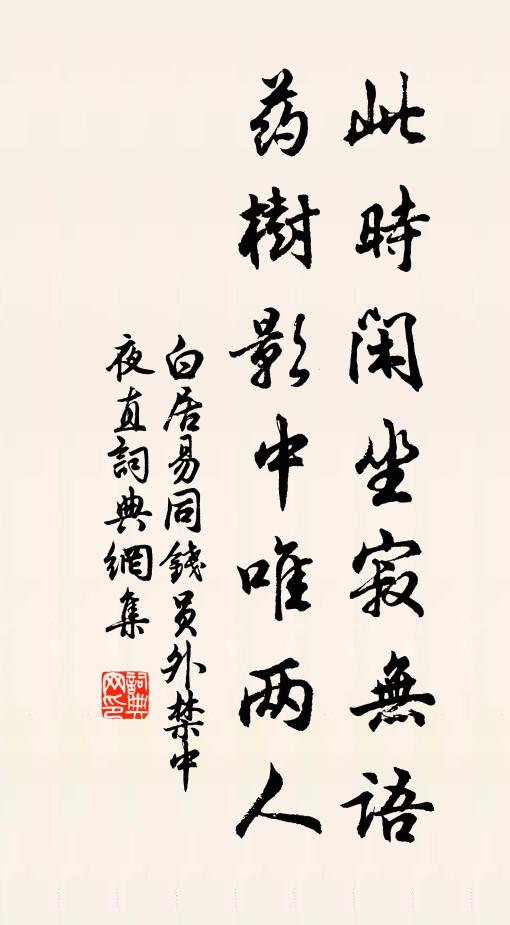 此時閑坐寂無語
药樹影中唯两人
白居易同錢員外禁中
夜直詞典網集
詞典
网印